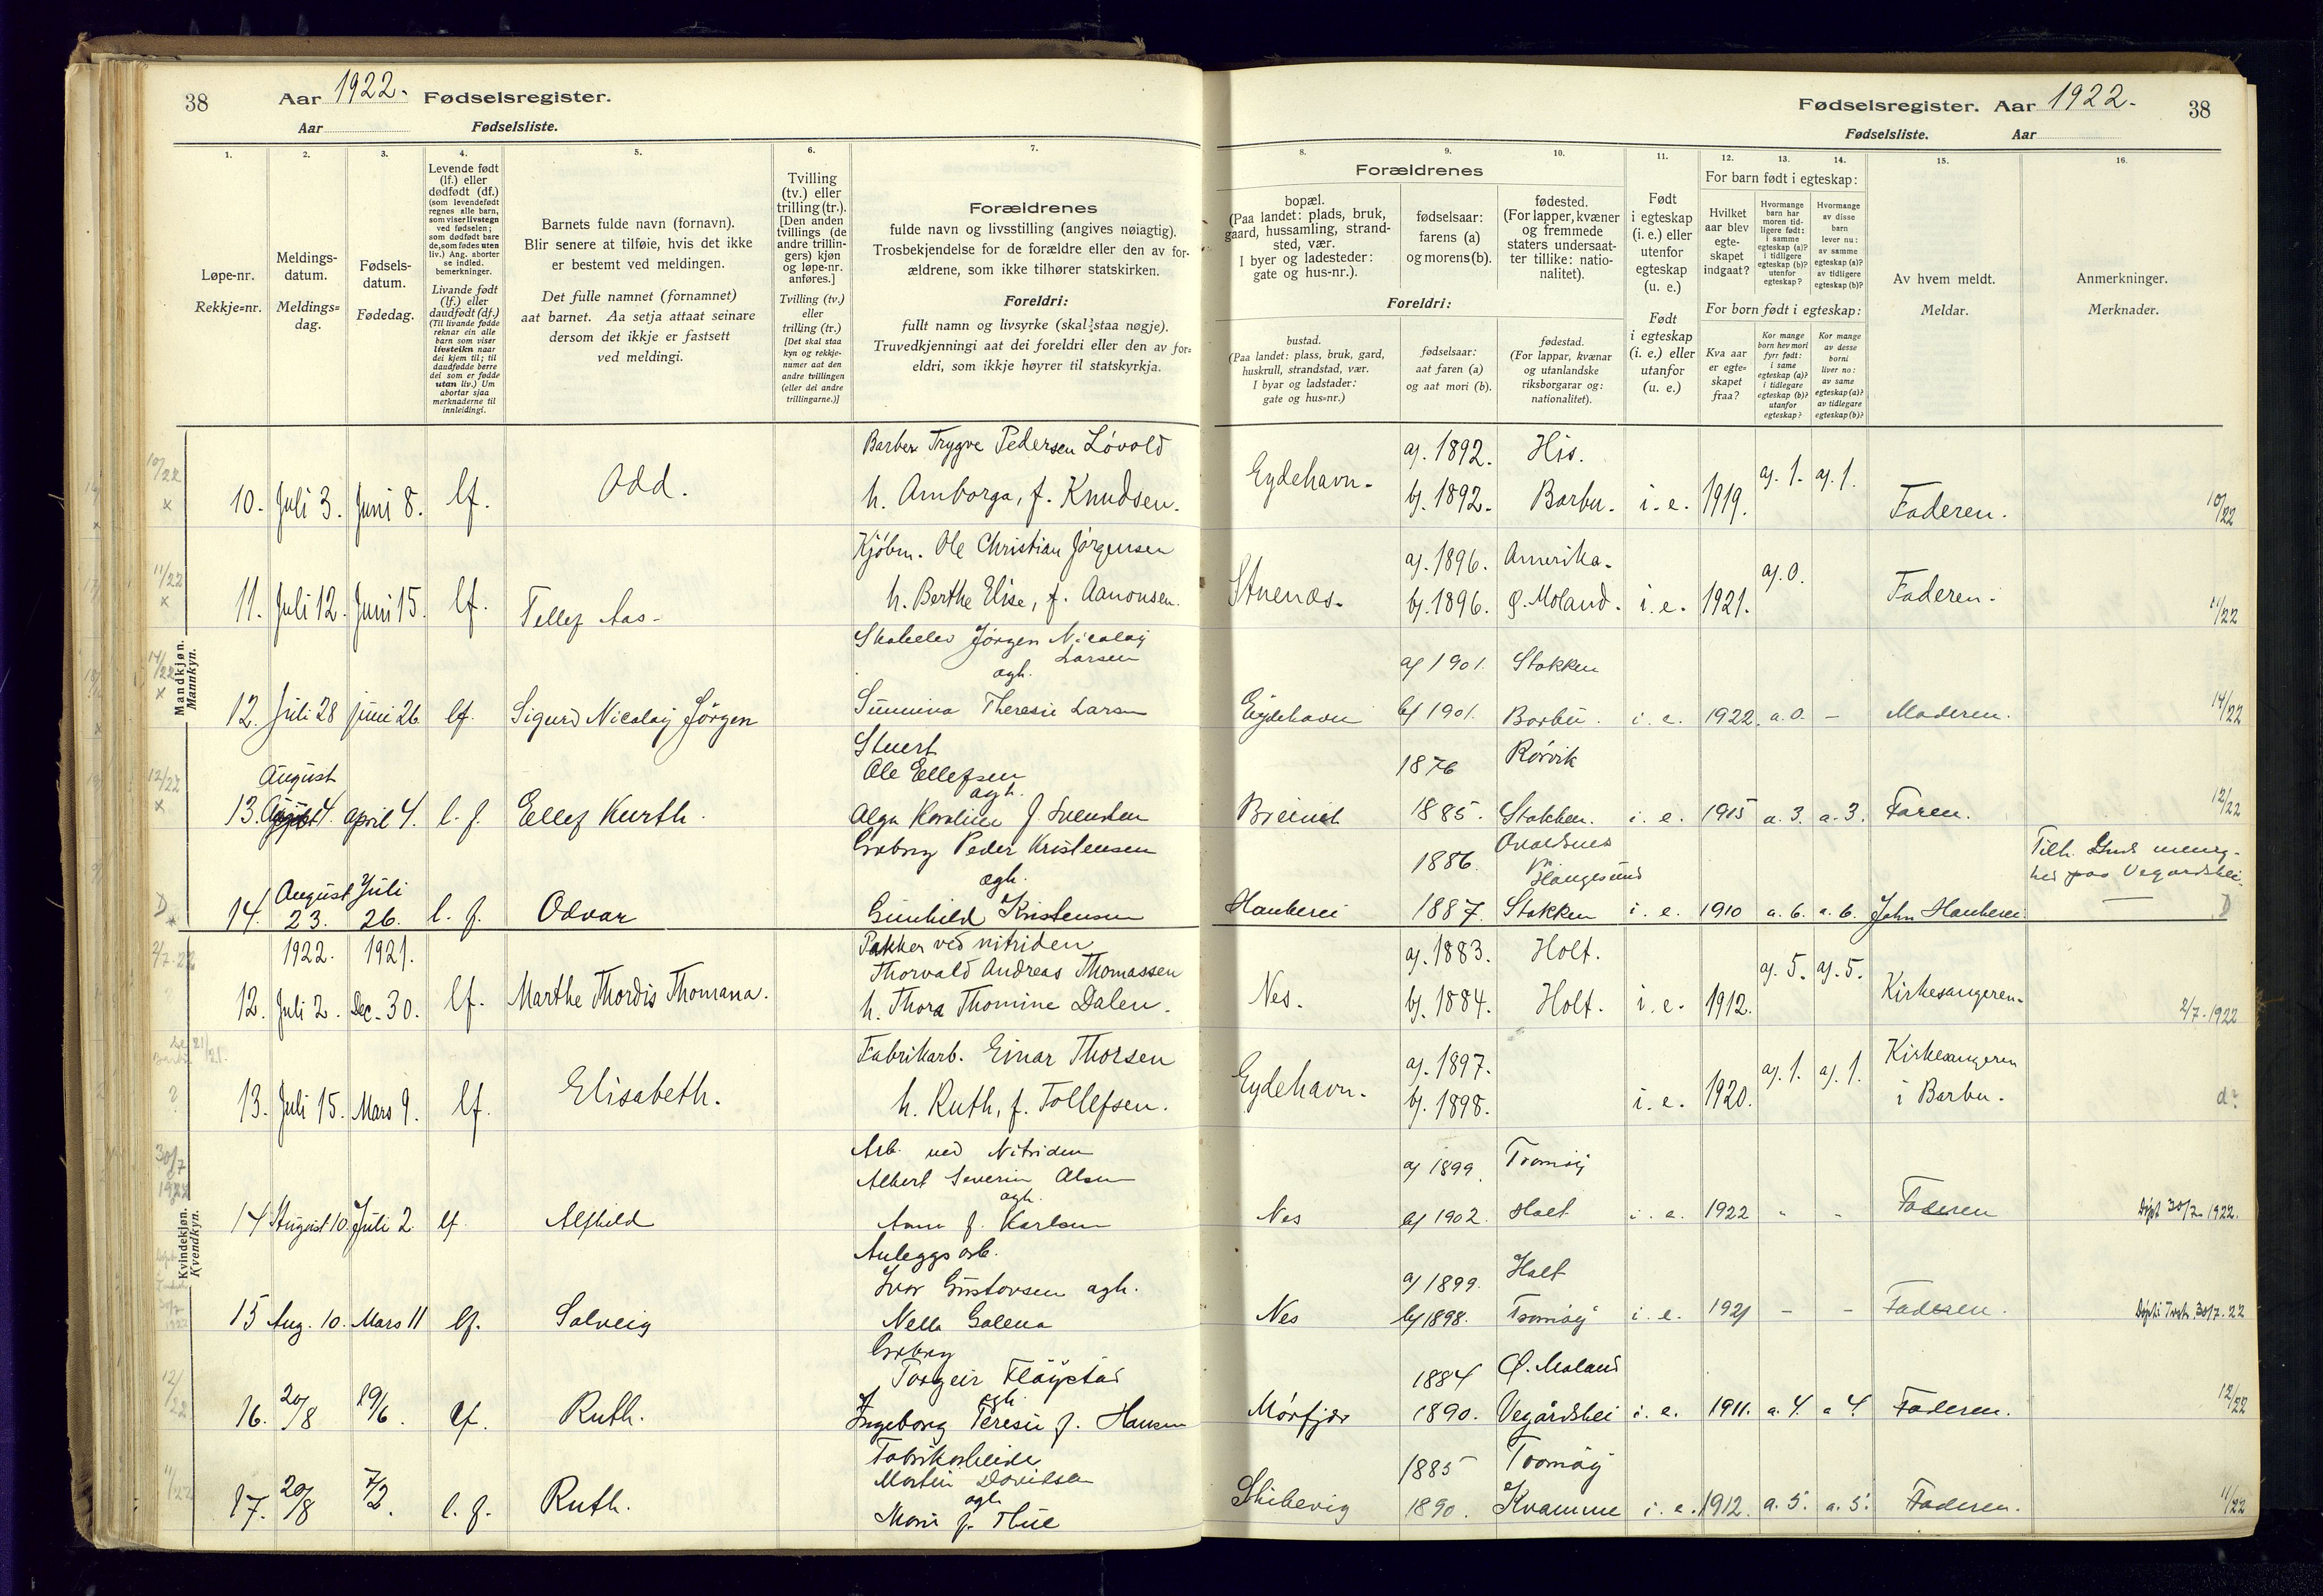 38 Aar 1922. Fødselsregister.
Aar Fødselsliste.
Fødselsregister. Aar 1922. 38
Fødselsliste. Aar
1. 2. 3. 4. 5. 6. 7.
Løpe-nr.
Rekkje=nr.
Meldings-
datum.
Meldings=
dag.
Fødsels-
datum.
Fødedag.
Levende født
(lf.) eller
dødfødt (df.)
(som levendefødt
regnes alle barn,
som viser livstegn
ved fødselen;
som dødfødt bare
de, som fødes uten
liv.) Ang. aborter
se indled.
bemerkninger.
Livande født
(lf.) eller
daudfødt (df.)
(Til livande fødde
reknar ein alle
barn som viser
livsteikn naar
dei kjem til; til
daudfødde berre
dei som er fødde
utan liv.) Um
abortar sjaa
merknaderne til
innleidingi.
Barnets fulde navn (fornavn).
Blir senere at tilføie, hvis det ikke
er bestemt ved meldingen.
Det fulle namnet (fornamnet)
aat barnet. Aa setja attaat seinare
dersom det ikkje er fastsett
ved meldingi.
Tvilling
(tv.) eller
trilling (tr.).
[Den anden
tvillings (de
andre trillin-
gers) kjøn
og løpe-nr.
anføres.]
Tvilling (tv.)
eller
trilling (tr.)
[Det skal staa
kyn og rekkje-
numer aat den
andre tvillingen
(eller dei andre
trillingarne.)]
Forældrenes
fulde navn og livsstilling (angives nøiagtig).
Trosbekjendelse for de forældre eller den av for-
ældrene, som ikke tilhører statskirken.
Foreldri:
fullt namn og livsyrke (skal staa nøgje).
Truvedkjenningi aat dei foreldri eller den av for=
eldri, som ikkje høyrer til statskyrkja.
8. 9. 10. 11. 12. 13. 14. 15. 16.
Forældrenes
bopæl.
(Paa landet: plads, bruk,
gaard, hussamling, strand-
sted, vær.
I byer og ladesteder:
gate og hus-nr.).
fødselsaar:
farens (a)
og morens (b).
fødested.
(For lapper, kvæner
og fremmede
staters undersaat-
ter tillike: natio-
nalitet).
Foreldri:
bustad.
(Paa landet: plass, bruk, gard,
huskrull, strandstad, vær.
I byar og ladstader:
gate og hus=nr.)
fødselsaar:
aat faren (a)
og aat mori (b).
fødestad.
(For lappar, kvænar
og utanlandske
riksborgarar og:
nationalitet).
Født
i egteskap
(i. e.) eller
utenfor
egteskap
(u. e.)
Født
i egteskap
(i. e.) eller
utanfor
(u. e.)
For barn født i egteskap:
Hvilket
aar blev
egte-
skapet
indgaat?
Hvormange
barn har
moren tid-
ligere født:
i samme
egteskap (a)?
i tidligere
egteskap (b)?
utenfor
egteskap?
Hvormange
av disse
barn
lever nu:
av samme
egteskap (a)?
av tidligere
egteskap (b)?
For born født i egteskap:
Kva aar
er egte=
skapet
fraa?
Kor mange
born hev mori
fyrr født:
i same
egteskap (a)?
i tidlegare
egteskap (b)?
utanfor
egteskap?
Kor mange
av desse
borni
liver no:
av same
egteskap (a)?
av tidlegare
egteskap (b)?
Av hvem meldt.
Meldar.
Anmerkninger.
Merknader.
Mandkjøn.
Mannkyn.
10/22 x
Barber Trygve Pedersen Løvold
10. Juli 3. Juni 8. lf. Odd. h. Amborga, f. Knudsen.
Eydehavn. a). 1892. His.
b). 1892. Barbu. i. e. 1919. a). 1. a). 1. Faderen. 10/22
11/22 x
Kjøbm. Ole Christian Jørgensen
11. Juli 12. Juni 15. lf. Tellef Aas. h. Berthe Elise, f. Aanonsen.
Stuenæs. a). 1896. Amerika.
b). 1896. Ø. Moland. i. e. 1921. a). 0. Faderen. 11/22
14/22 x
Jørgen Nicolay
Larsen
agh.
12. Juli 28 juni 26 lf. Sigurd Nicolay Jørgen Sunniva Theresie Larsen
a) 1901. Stokken
Eydehavn b) 1901. Barbu. i. e. 1922. a. 0. – Moderen. 14/22
12/22 x
Stuert
Ole Ellefsen
agh.
August
13. 4. april 4. l. f. Ellef Kurth. Alga Karoline f Svendsen
1876 Rørvik
1885. Stokken. i. e. 1915 a. 3. a. 3. Faren. 12/22
D x
Peder Kristensen
agh.
14. August 23. Juli 26. l. f. Odvar Gunhild Kristensen
1886.
Haugesund
1887. Stokken i. e. 1910 a. 6. a. 6. John
Tilh. menig-
hed paa Vegardshei.
D
Kvindekjøn.
Kvendkyn.
2/7.22
1922. 1921.
Pakker ved nitriden
Thorvald Andreas Thomassen
12. Juli 2. Dec. 30. lf. Marthe Thordis Thomana. h. Thora Thomine Dalen.
Nes. a). 1883. Holt.
b). 1884. Holt. i. e. 1912. a). 5. a). 5. Kirkesangeren. 2/7.1922
?
Fabrikarb. Einar Thorsen
13. Juli 15. Mars 9. lf. Elisabeth. h. Ruth, f. Tollefsen.
Eydehavn. a). 1897.
b). 1898. i. e. 1920. a). 1. a). 1. Kirkesangeren
i Barbu. d?
30/7
1922
Arb. ved Nitriden
Albert Severin Olsen
agh.
14 August 10. Juli 2. lf. Alfhild Anna f. Karlsen
a) 1899. Tromøy
Nes b) 1902. Holt i. e. 1922 - - Faderen Døpt 30/7.1922.
Anleggsarb.
Ivar Gustavsen agh.
15 Aug. 10. Mars 11 lf. Solveig Nella Galena
a) 1899. Holt
Nes b) 1898. Tromøy i. e. 1921 – – Faderen. Døpt i 30/7.22
12/22
Torgeir Fløystad
agh.
16. 20/8 19/6. lf. Ruth. Ingeborg Teresie f. Hansen
1884 Ø. Moland
Mørfjær 1890. Vegårdshei i. e. 1911. a. 4. a 4. Faderen. 12/22
11/22
Fabrikarbeide
Martin Davidsen
agh.
17. 20/8 7/2. l. f. Ruth. Marie f. Thue
1885 Tromøy
Skibevig 1890. Kvamme i. e. 1912. a. 5. a. 5. Faderen. 11/22